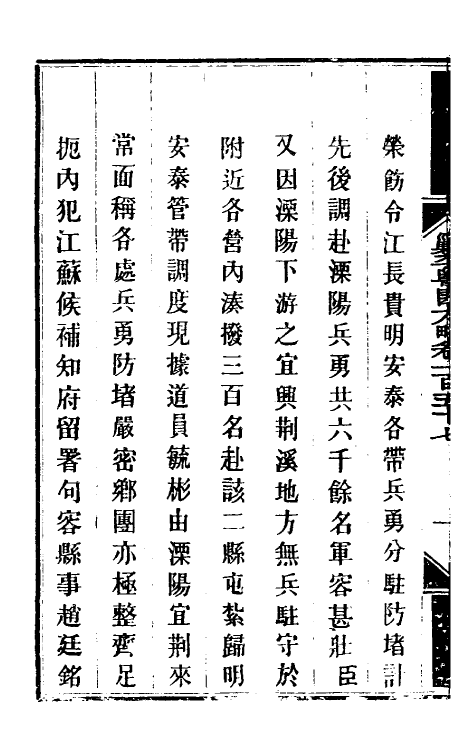 榮飭令江長貴明安泰各帶兵勇分駐防堵計
先後調赴溧陽兵勇共六千餘名軍容甚壯臣
又因溧陽下游之宜興荆溪地方無兵駐守於
附近各營內湊撥三百名赴該二縣屯紮歸明
安泰管帶調度現據道員毓彬由溧陽宜荆來
常面稱各處兵勇防堵嚴密鄉團亦極整齊足
扼內犯江蘇候補知府留署句容縣事趙廷銘